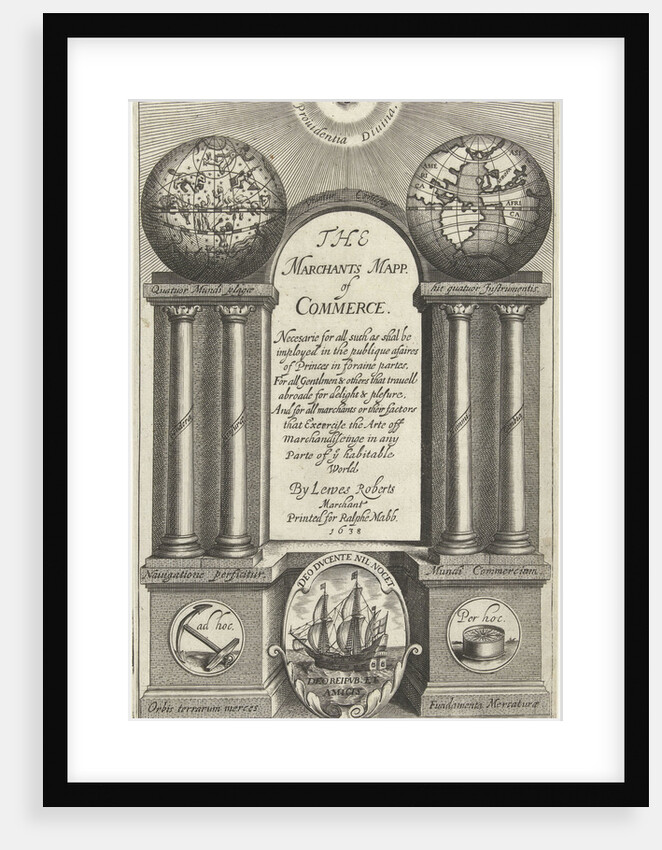 Providentia Divina.
AME
RI
CA
ASI
AFRI
CA
THE
MARCHANTS MAPP.
of
COMMERCE.
Necesarie for all such as shal be
imployed in the publique afaires
of Princes in foraine partes,
For all Gentlmen & others that travell
abroade for delight & plesure,
And for all marchants or their factors
that Exercise the Arte off
Marchandiseinge in any
Parte of ẙ habitable
World,
By Lewes Roberts
Marchant
Printed for Ralphe Mabb.
1638
Quatuor Mundi plagæ
hic quatuor Instrumentis.
Navigatione perficitur,
Mundi Commercium.
ad hoc.
Per hoc.
DEO DVCENTE NIL NOCET
DEO REIPVB. ET
AMICIS
Orbis terrarum merces
Fundamenta Mercaturæ